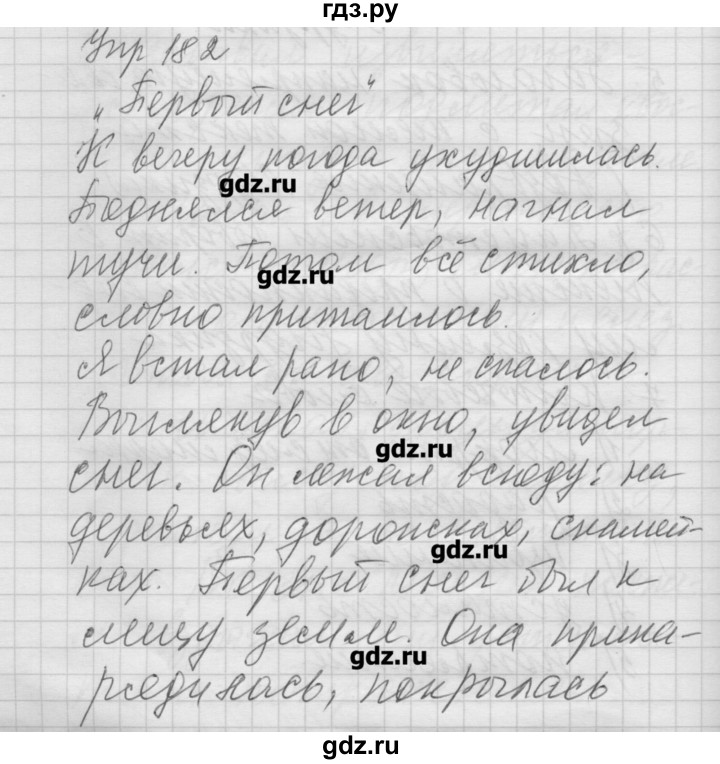 гдз.ру
Упр 182
„Первый снег"
К вечеру погода ухудшилась.
gdz.ru
Поднялся ветер, нагнал
тучи. Потом всё стихло,
gdz.ru
словно притаилось.
Я встал рано, не спалось.
Выглянув в окно, увидел
gdz.ru
снег. Он лежал всюду: на
деревьях, дорожках, скамей-
gdz.ru
ках. Первый снег был к
лицу земле. Она прина-
gdz.ru
рядилась, покрылась
gdz.ru